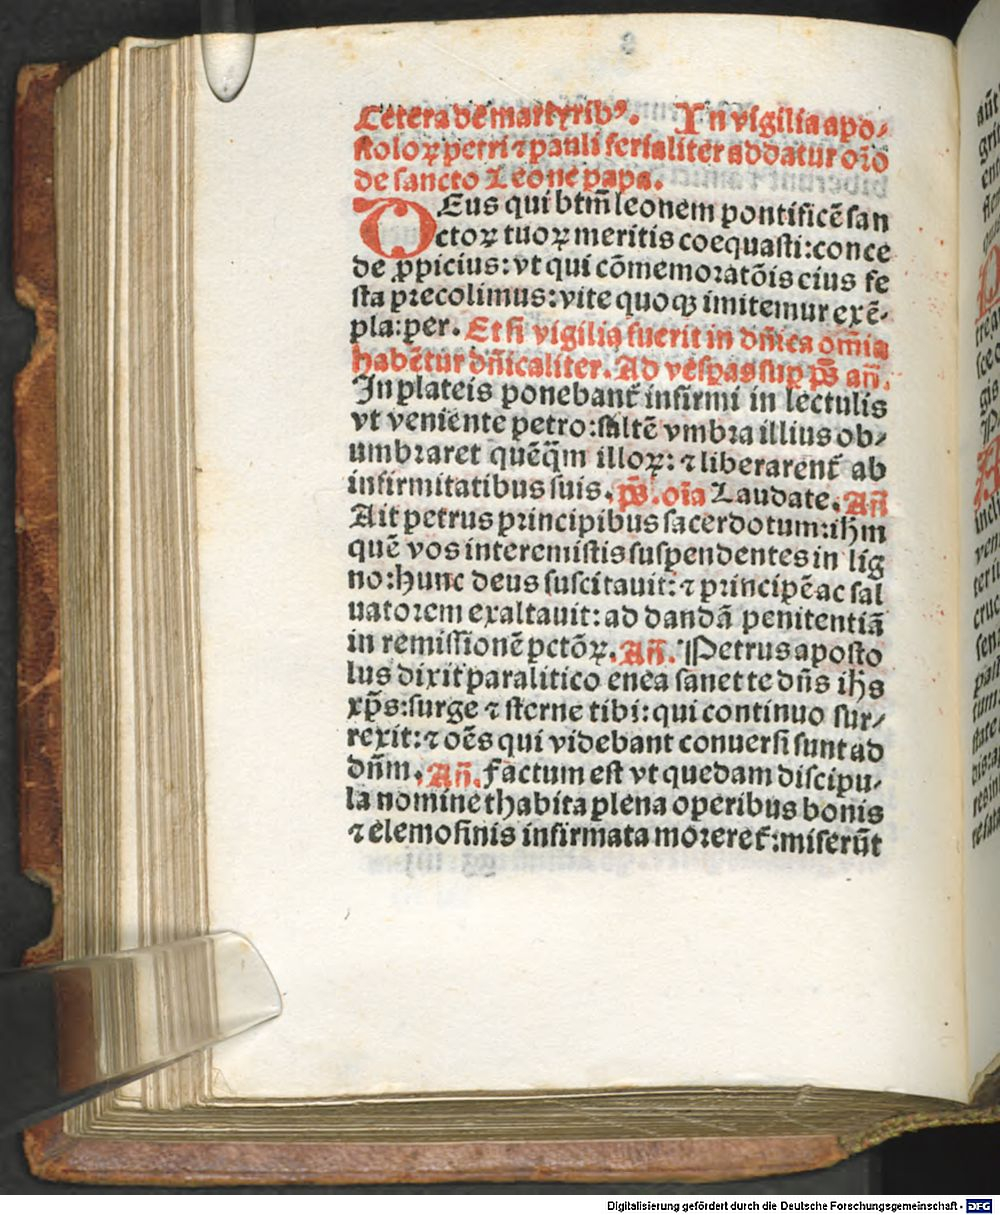 Cetera de martyribꝰ. In vigilia apo⸗
stoloꝝ petri ⁊ pauli ferialiter addatur oı̄o
de sancto Leone papa.
DEus qui btm̄ leonem pontificē san
ctoꝝ tuoꝝ meritis coequasti: conce
de ꝓpicius: vt qui cōmemoratōis eius fe
sta precolimus: vite quoqꝫ imitemur exē⸗
pla: per. Et si vigilia fuerit in dn̄ica om̄ia
habētur dn̄icaliter. Ad vesperas sup ps̄ an̄.
In plateis ponebant̄ infirmi in lectulis
vt veniente petro: saltē vmbra illius ob⸗
umbraret quēqm̄ illoꝝ: ⁊ liberarent̄ ab
infirmitatibus suis. ps̄. oı̄a Laudate. An̄
Ait petrus principibus sacerdotum: ihm
quē vos interemistis suspendentes in lig
no: hunc deus suscitauit: ⁊ principē ac sal
uatorem exaltauit: ad dandā penitentiā
in remissionē pctōꝝ. An̄. Petrus aposto
lus dixit paralitico enea sanet te dn̄s ihs
xp̄s: surge ⁊ sterne tibi: qui continuo sur⸗
rexit: ⁊ oēs qui videbant conuersi sunt ad
dn̄m. An̄. Factum est vt quedam discipu⸗
la nomine thabita plena operibus bonis
⁊ elemosinis infirmata moreret̄: miserūt
Digitalisierung gefördert durch die Deutsche Forschungsgemeinschaft - DFG